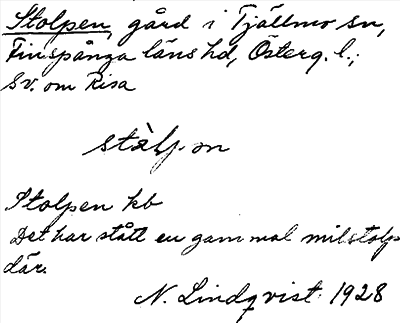 Stolpen, gård i Tjällmo sn,
Finspånga läns hd, Österg. l.;
Sv. om Risa
stàlpɷn
Stolpen kb
Det har stått en gammal milstolpe
där.
N. Lindqvist 1928